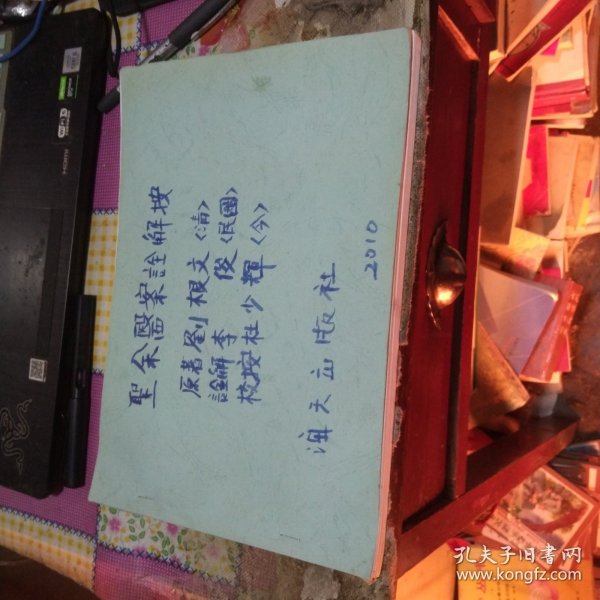 聖余醫案詮解按
原著 劉根文〈清〉
詮解 李俊〈民國〉
校按 杜少輝〈今〉
海天出版社
2010
孔夫子旧书网
www.kongfz.com